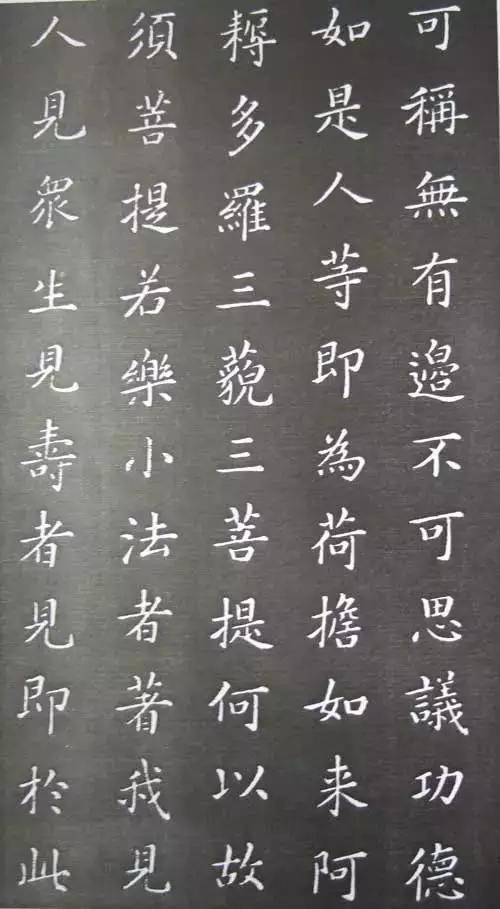 可稱無有邊不可思議功德
如是人等即為荷擔如来阿
耨多羅三藐三菩提何以故
須菩提若樂小法者著我見
人見衆生見壽者見即於此